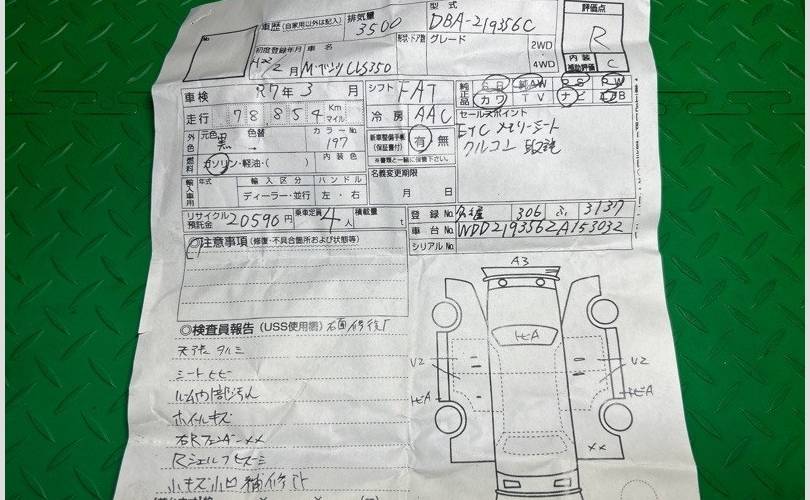 No.
車歴 (自家用以外は記入)
排気量 3500
型式 DBA-219356C
評価点 R
初度登録年月 H22/2月
車名 M・ベンツ CLS350
形状・ドア数
グレード
2WD
・
4WD
内装
補助評価 C
車検 R7年3月
シフト FAT
純正品
カワ TV ナビ
走行 78,854 Km
マイル
冷房 AAC
セールスポイント
ETC メモリーシート
クルコン 取説
外色 元色 黒 色替 カラーNo. 197
新車整備手帳
(保証書付) 有・無
※書類と一緒に保管下さい。
燃料 ガソリン・軽油・( ) 内装色
名義変更期限
月 日
輸入車用 年式 輸入区分 ハンドル
ディーラー・並行 左・右
リサイクル
預託金 20590円
乗車定員 4人
積載量 t
登録No. 名古屋 306 ふ 3137
車台No. WDD2193562A153032
シリアルNo.
◎注意事項 (修復・不具合箇所および状態等)
A3
◎検査員報告 (USS使用欄)
天張タルミ
シートヒビ
ホイルキズ
右Rフェンダー××
小キズ小凹 補修跡
V2
V2
××